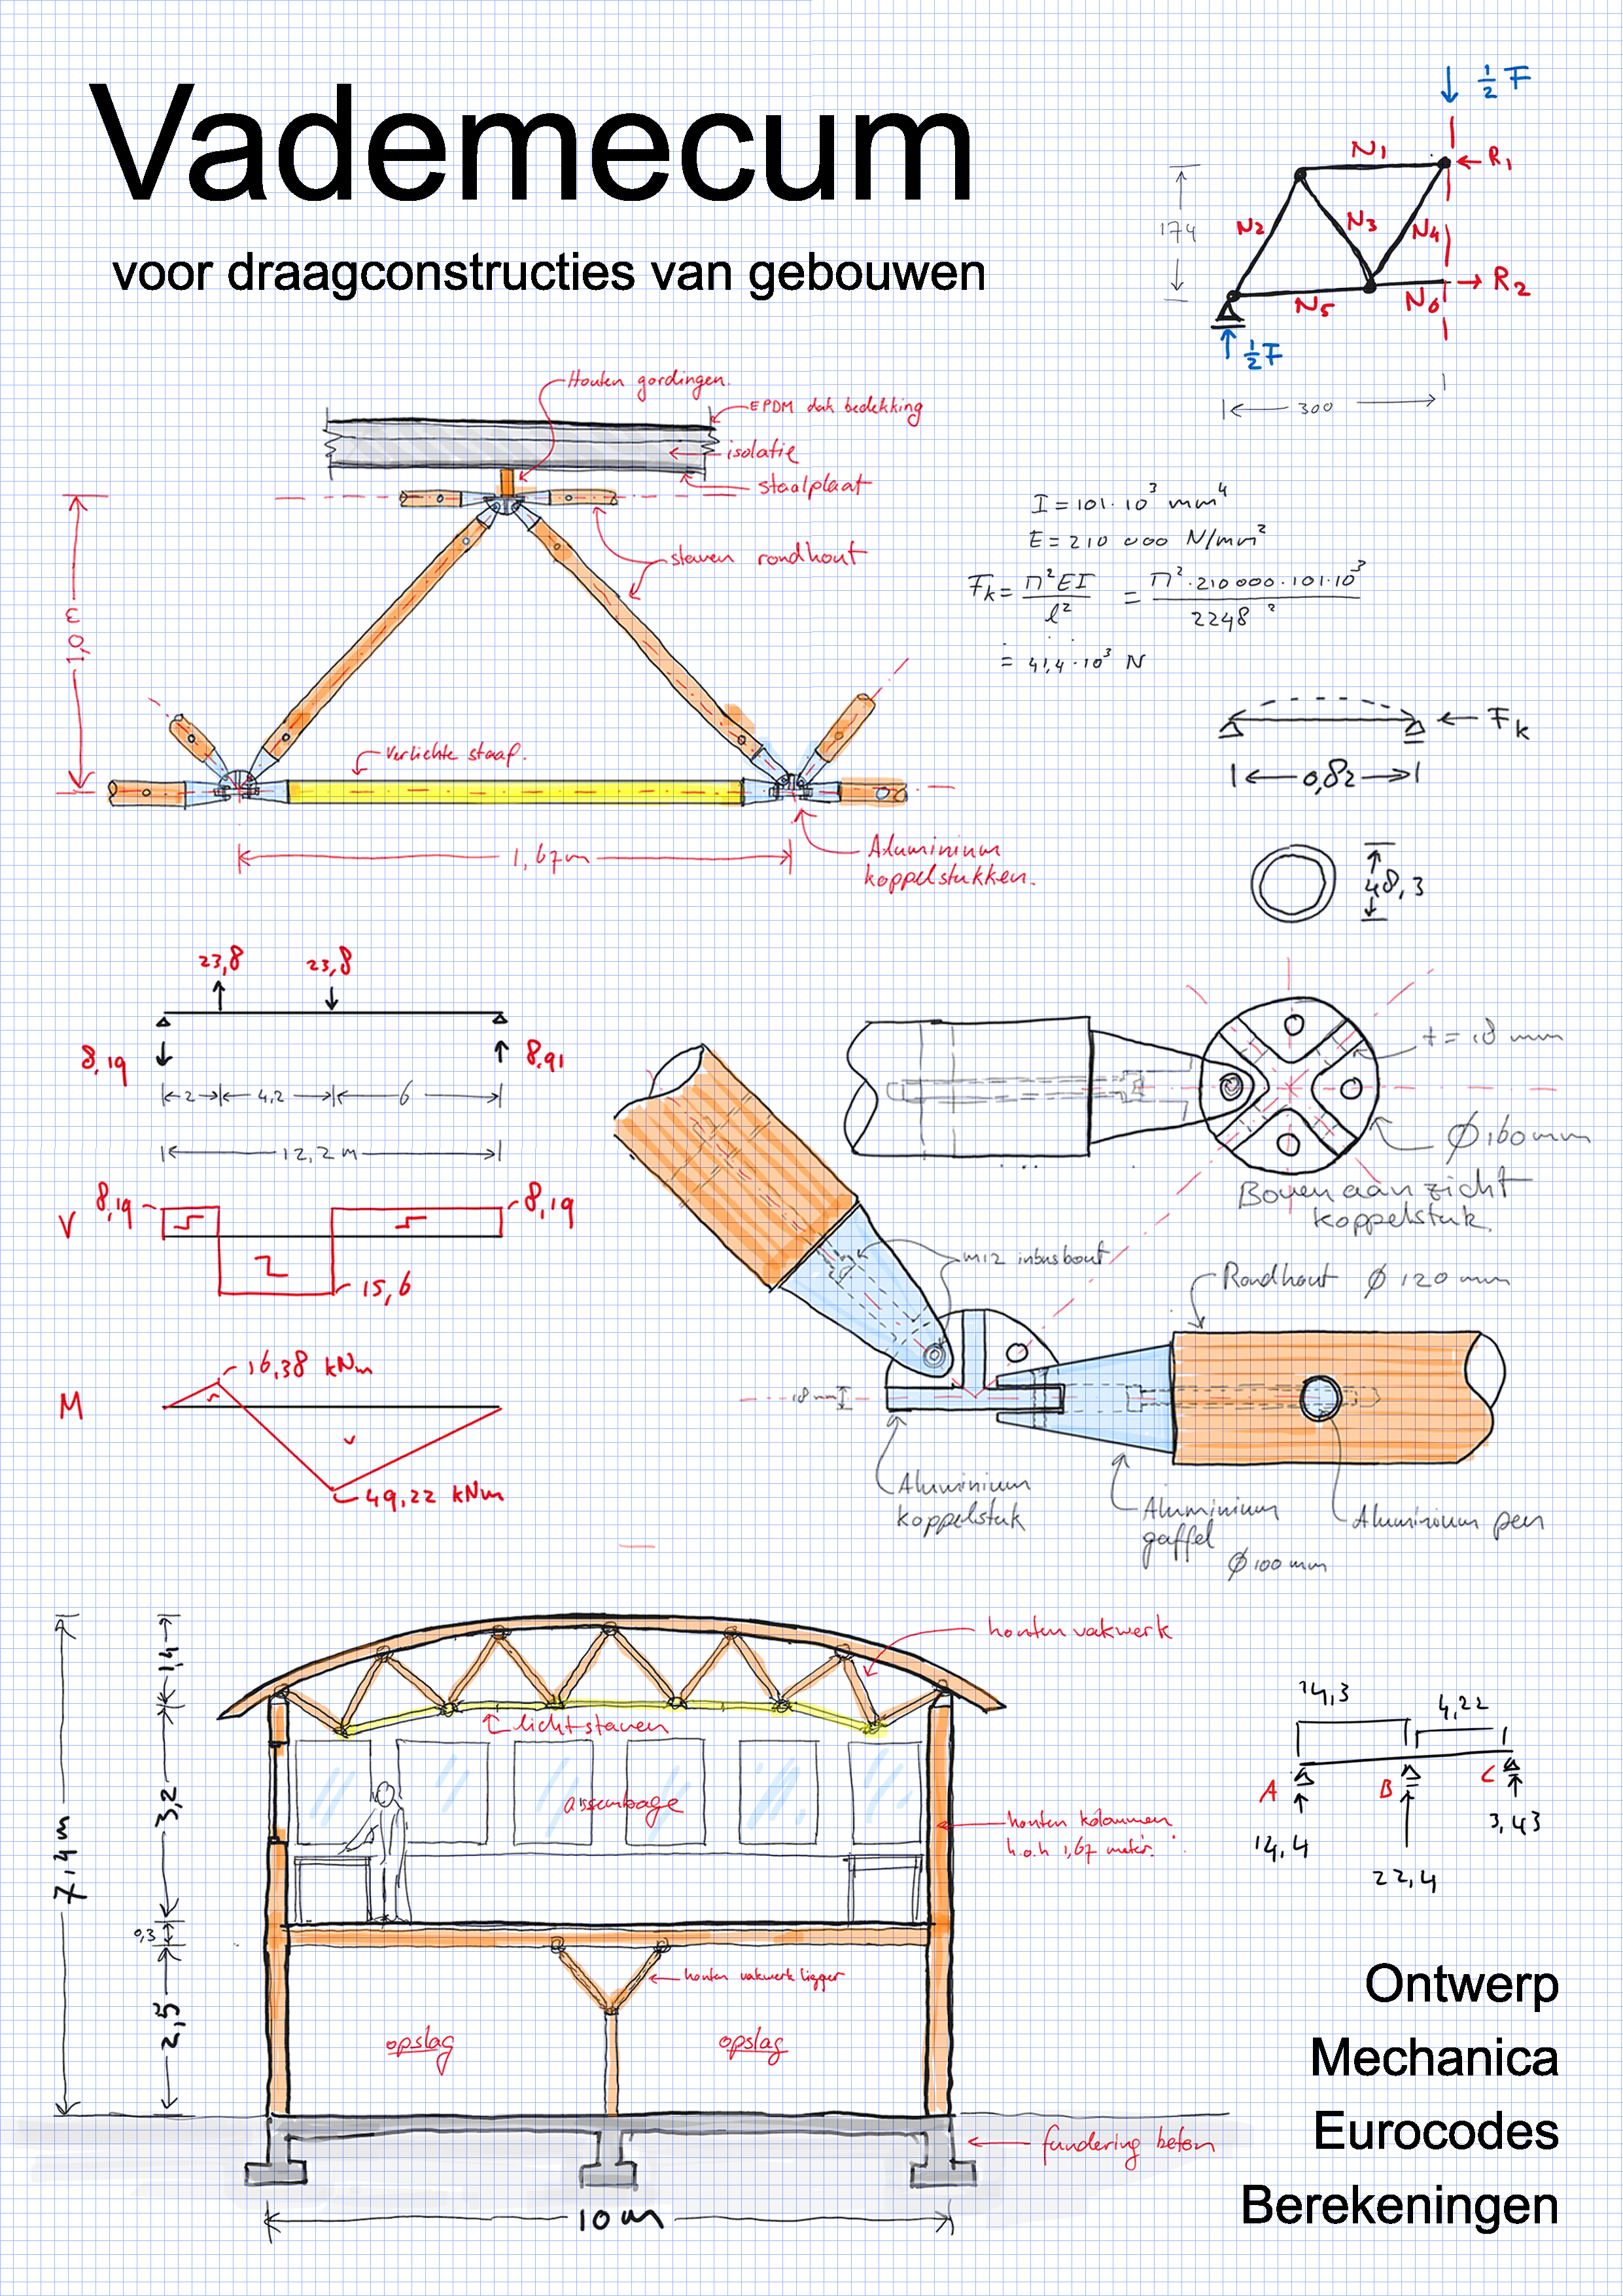 Vademecum
voor draagconstructies van gebouwen
↓ ½ F
N1
← R1
N2
N3
N4
174
N5
N6
→ R2
↑ ½ F
300
Houten gordingen.
EPDM dak bedekking
isolatie
staalplaat
staven rondhout
1,0 m
verlichte staaf.
1,67m
Aluminium
koppelstukken.
I = 101·10³ mm⁴
E = 210 000 N/mm²
Fk = π²EI / l² = π²·210000·101·10³ / 2248²
= 41,4·10³ N
← Fk
0,82
48,3
23,8
23,8
8,19
8,91
2
4,2
6
12,2 m
V
8,19
8,19
15,6
M
16,38 kNm
49,22 kNm
t = 18 mm
Ø 160 mm
Bovenaanzicht
koppelstuk.
M12 inbusbout
Rondhout Ø 120 mm
18 mm
Aluminium
koppelstuk
Aluminium
gaffel
Ø 100 mm
Aluminium pen
houten vakwerk
lichtstaven
assemblage
houten kolommen
h.o.h 1,67 meter.
houten vakwerk ligger
opslag
opslag
fundering beton
7,4 m
1,4
3,2
0,3
2,5
10 m
14,3
4,22
A
B
C
14,4
22,4
3,43
Ontwerp
Mechanica
Eurocodes
Berekeningen